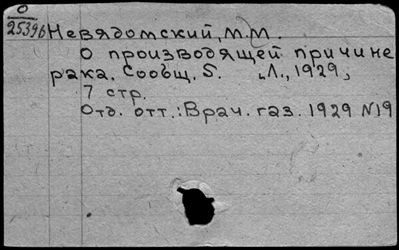 О
25396 Невядомский, М.М.
О производящей причине
рака. Сообщ. 5. Л., 1929,
7 стр.
Отд. отт.: Врач. газ. 1929 N19